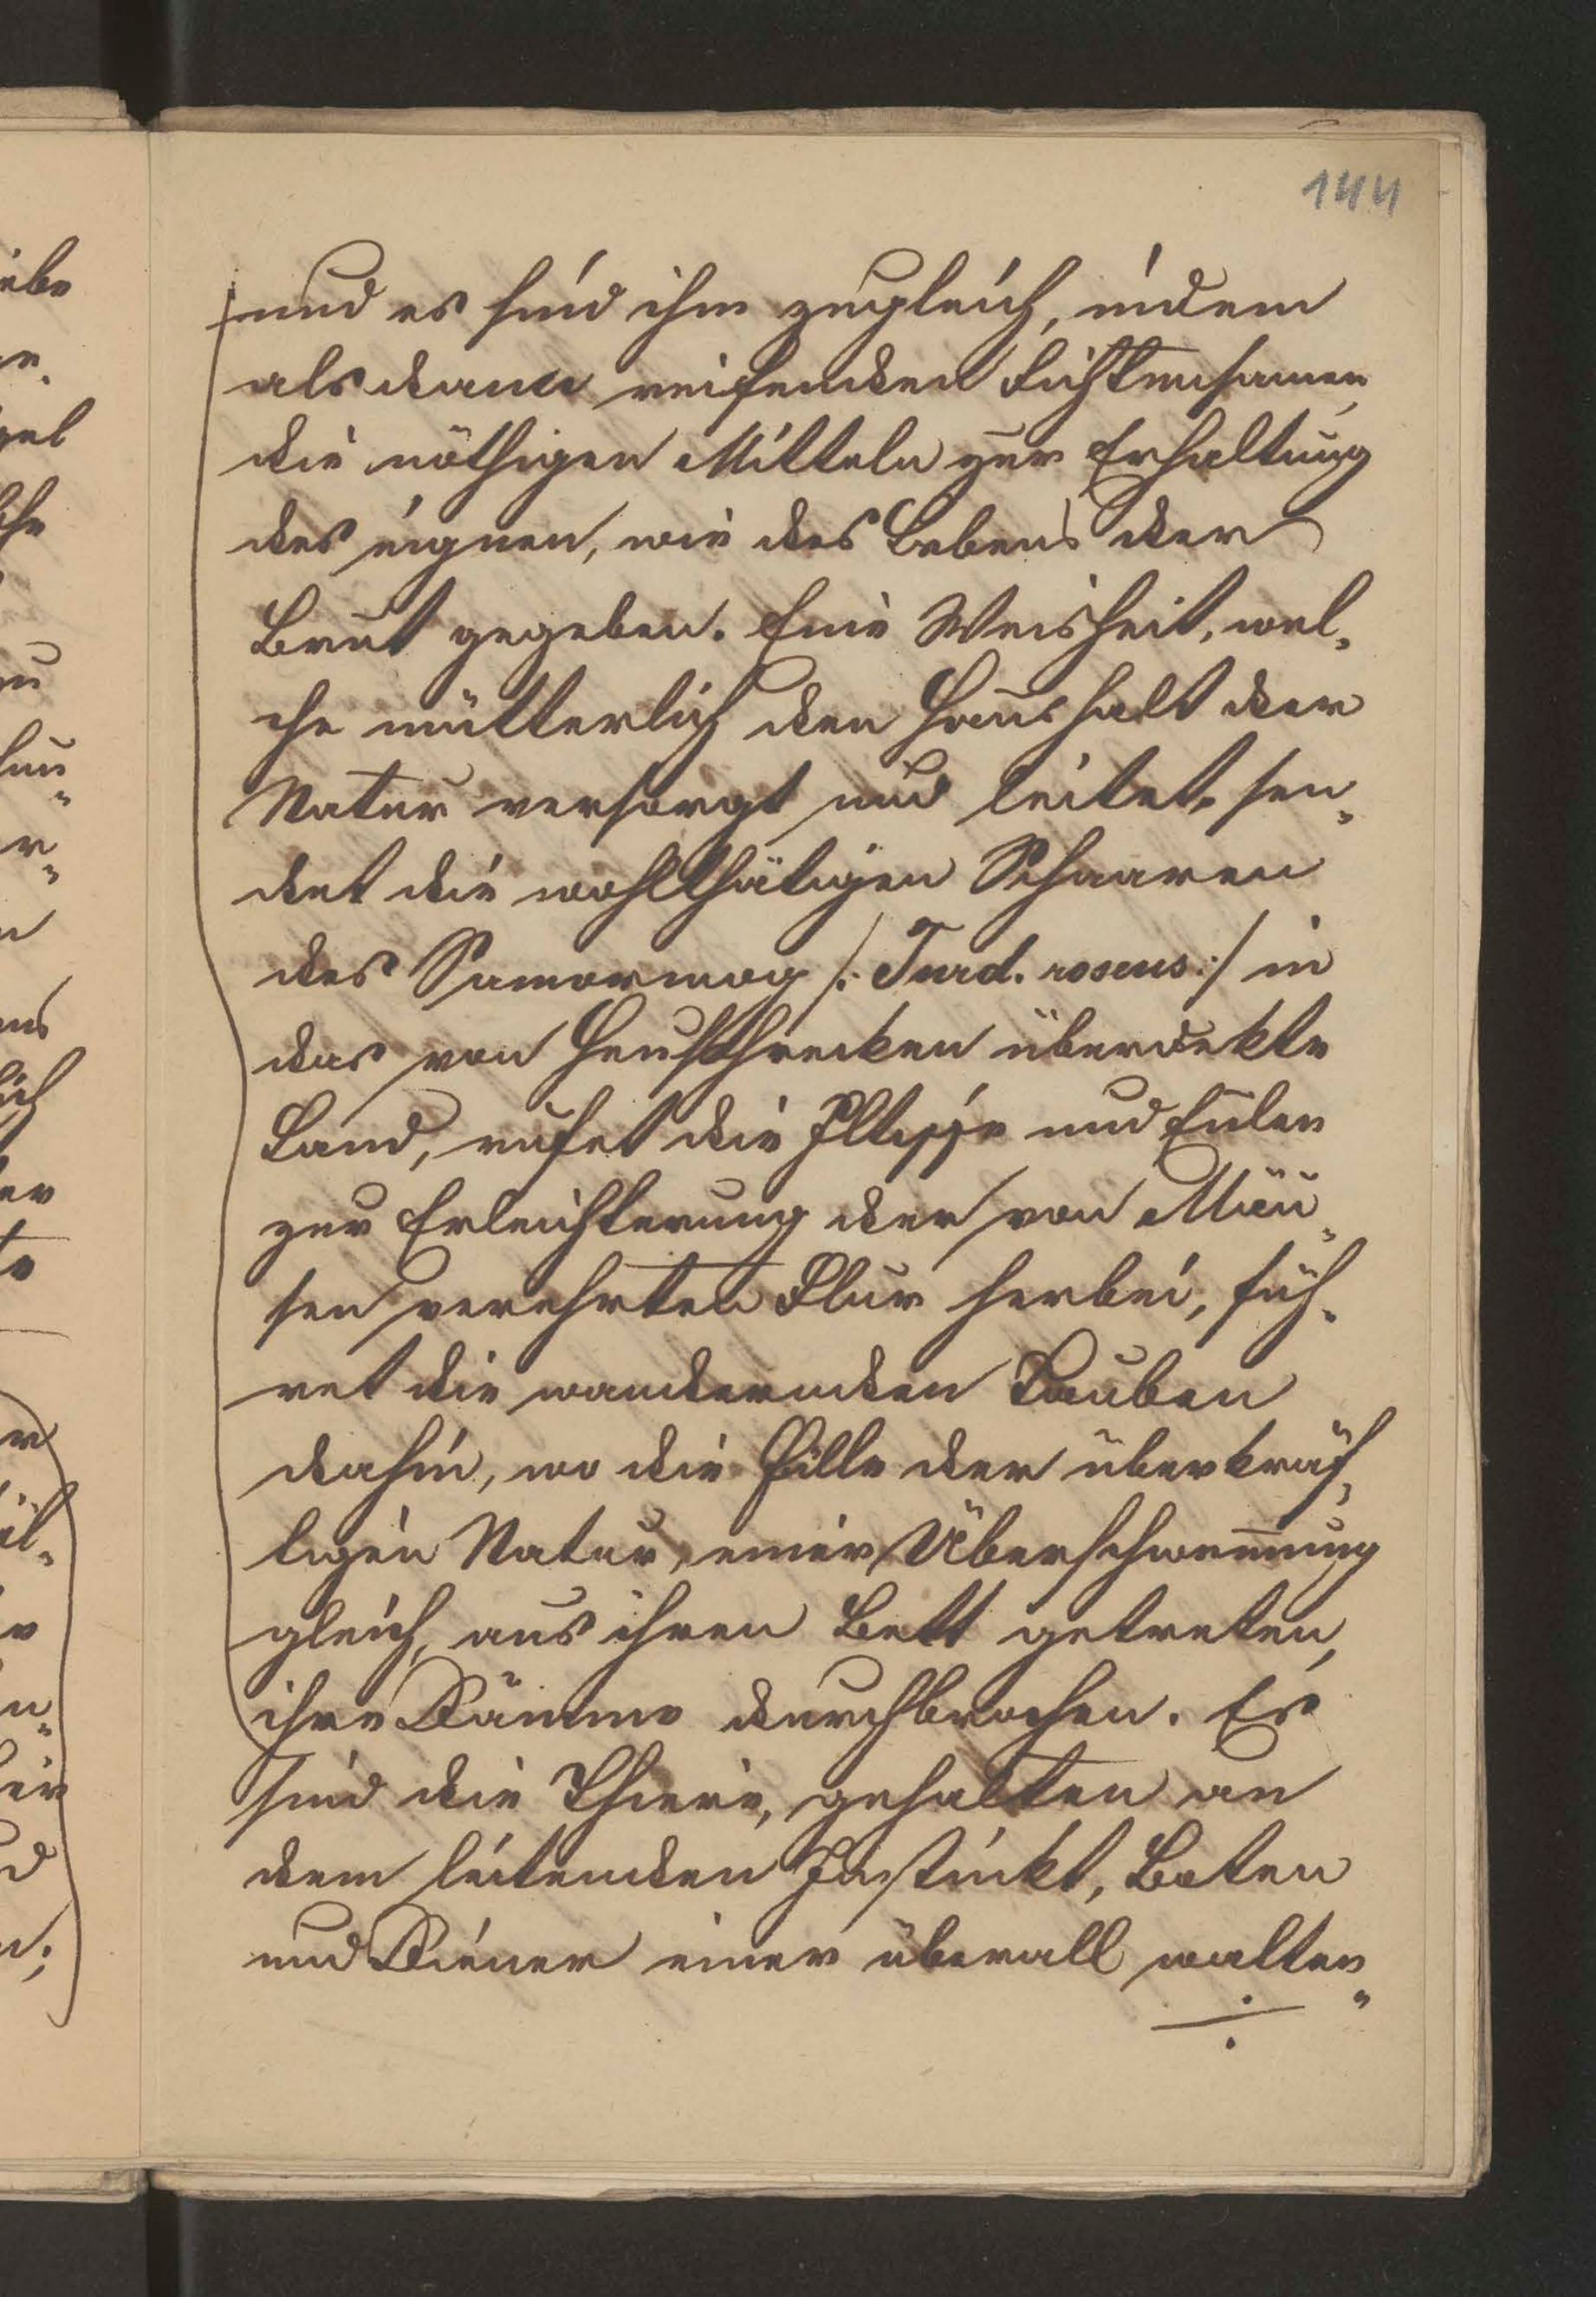 144
und es sind ihm zugleich, in dem
alsdann reifenden Fichtensamen,
die nöthigen Mitteln zur Erhaltung
des eignen, wie des Lebens der
Brut gegeben. Eine Weisheit, wel-
che mütterlich den Haushalt der
Natur versorgt und leitet, sen-
det die wohlthätigen Schaaren
des Samarmog /: Turd. roseus :/ in
das von Heuschrecken überdekte
Land, rufet die Iltisse und Eulen
zur Erleichterung der von Mäu-
sen verehrten Flur herbei, füh-
ret die wandernden Tauben
dahin, wo die Fülle der überkräf-
tigen Natur, einer Überschwemmung
gleich, aus ihren Bett getreten,
ihre Dämme durchbrochen. Es
sind die Thiere, gehalten an
dem leitenden Instinkt, Boten
und Diener einer überall walten-